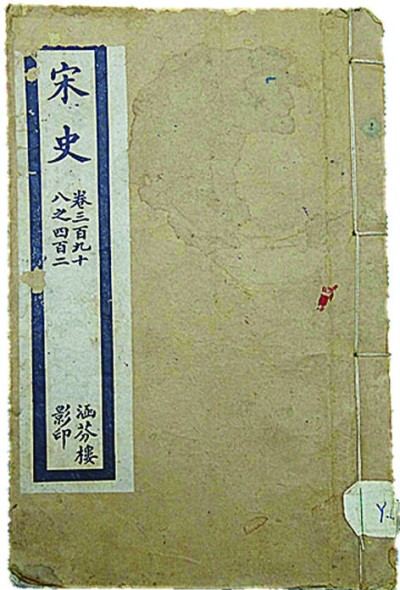 宋史
卷三百九十
八之四百二
涵芬樓
影印
Y